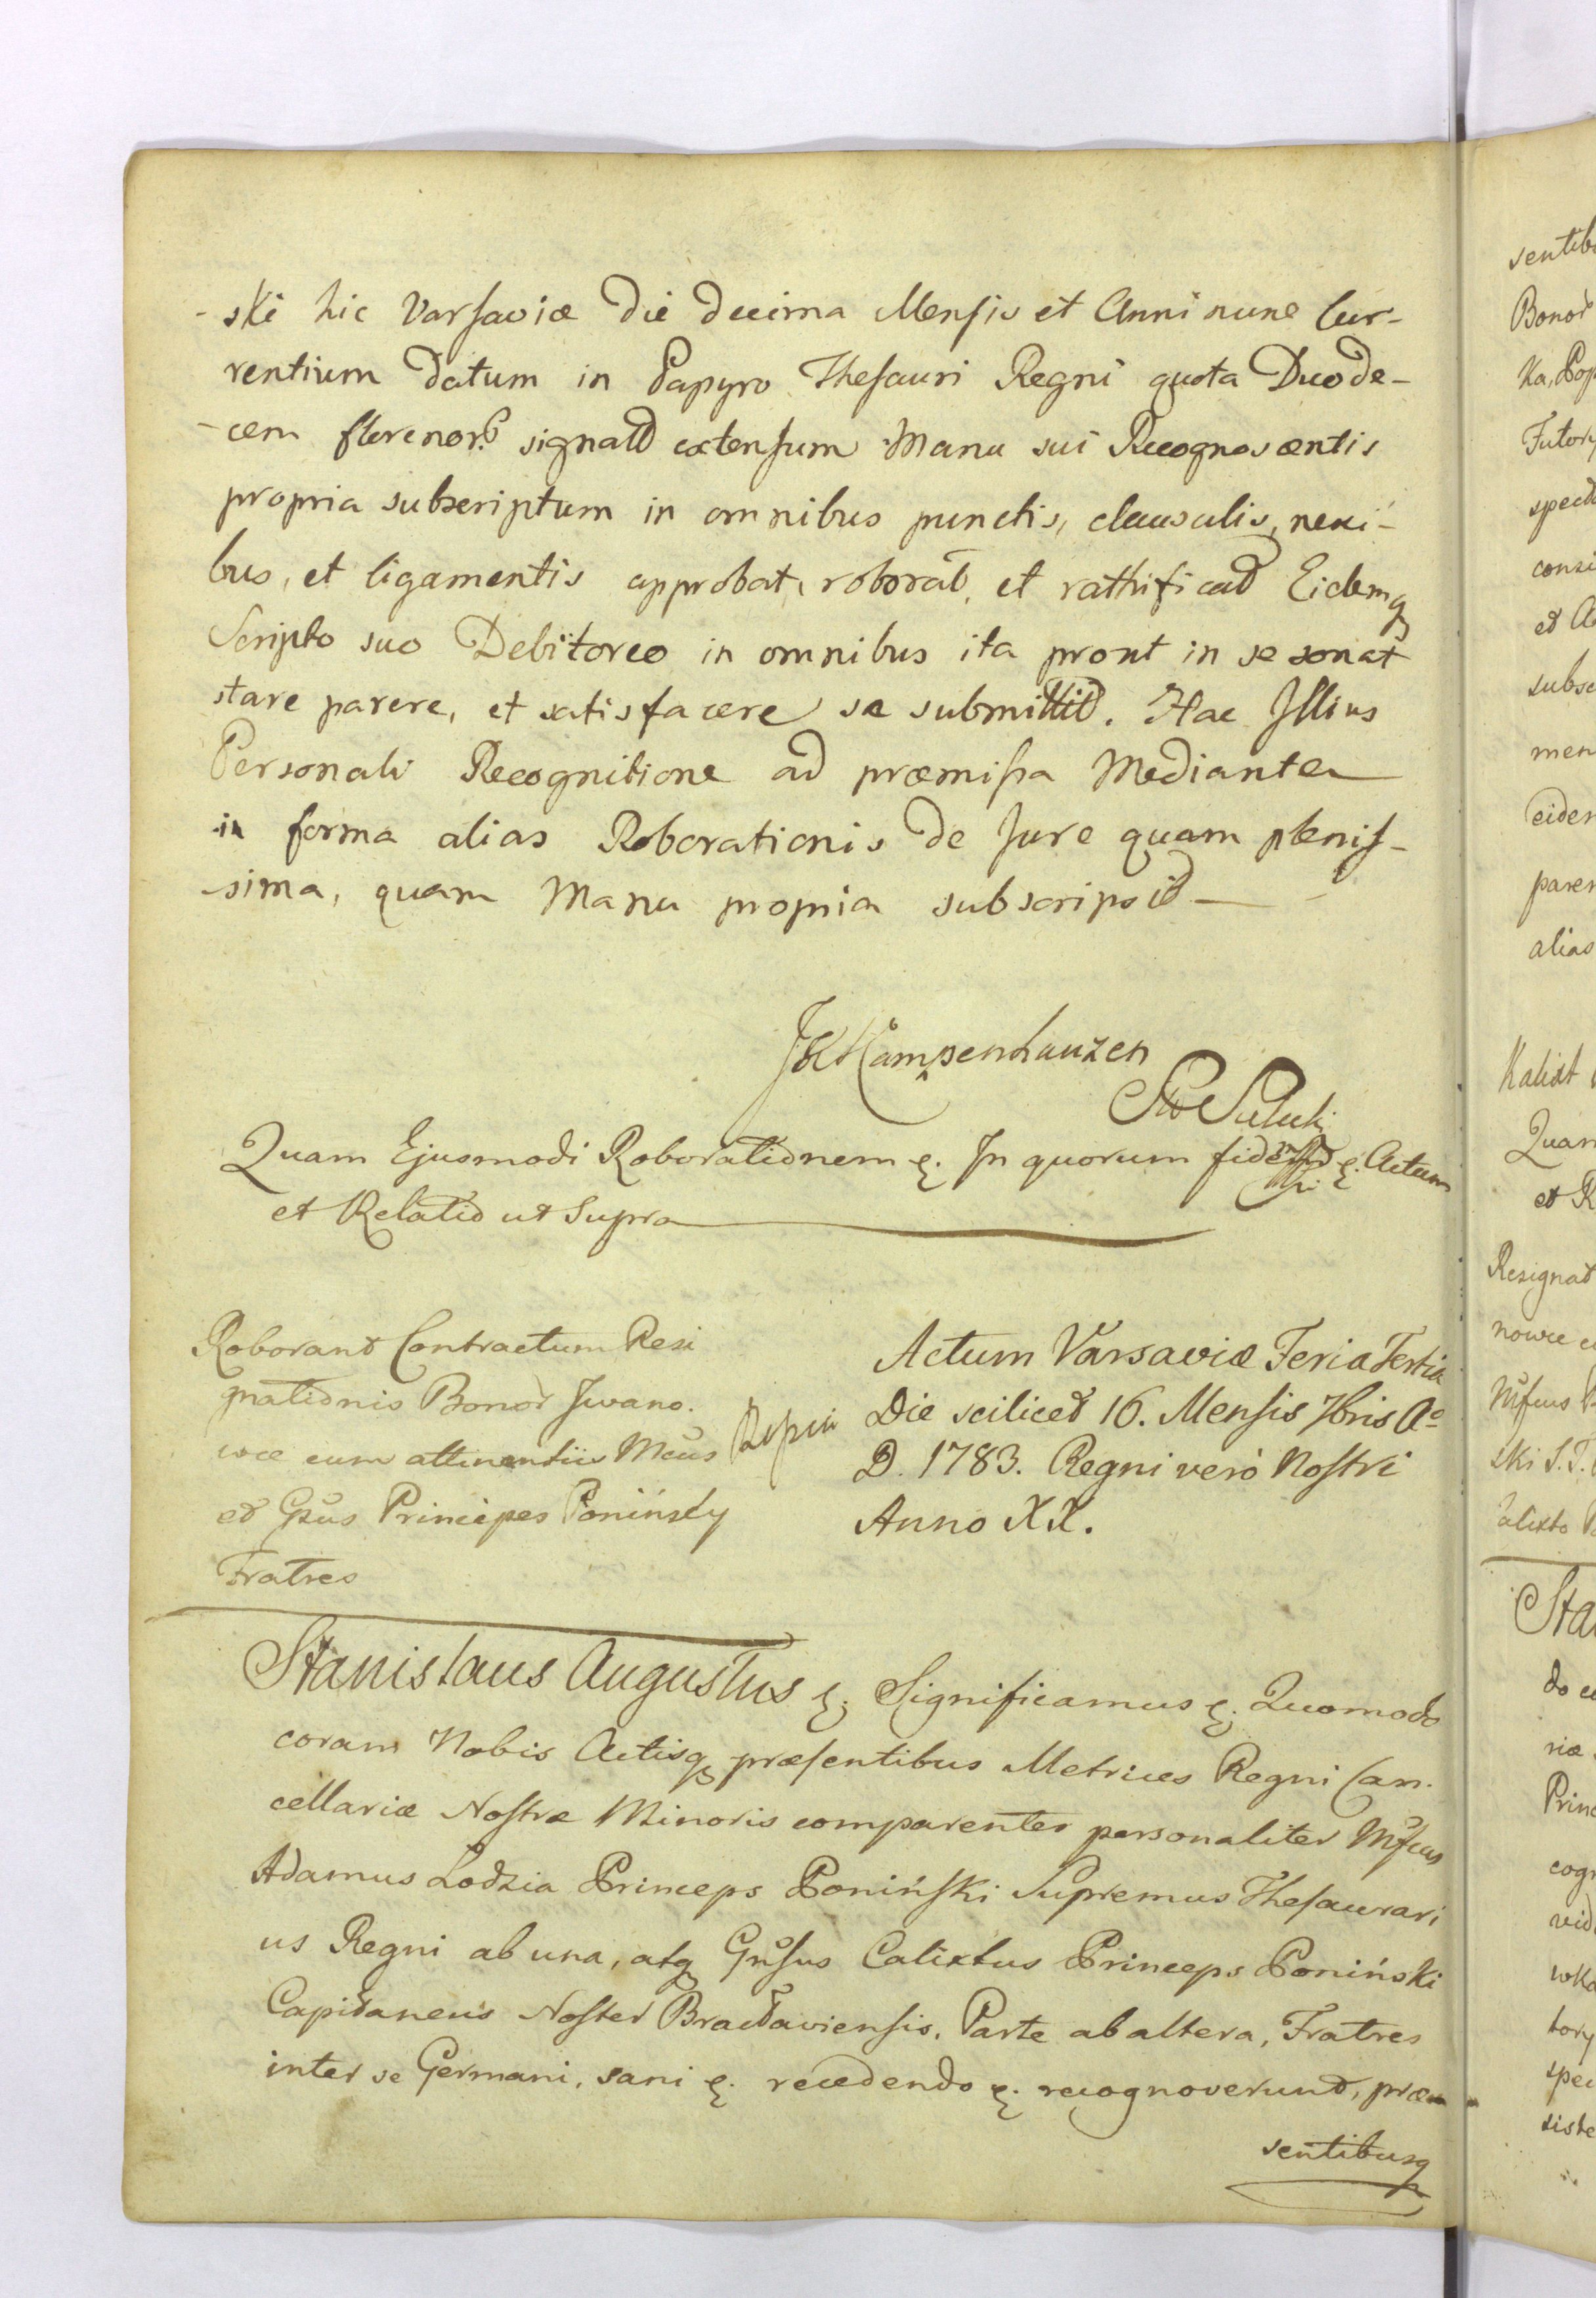 -ski hic Varsaviæ Die decima Mensis et Anni nunc Cur-
rentium datum in Papyro Thesauri Regni quota Duode-
-cem florenor. signato extensum Manu sui Recognoscentis
propria subscriptum in omnibus punctis, clausulis, nexi-
bus, et ligamentis approbat, roborat, et ratthificat Eidemq
Scripto suo Debitoreo in omnibus ita prout in se sonat
stare parere, et satisfacere se submittit. Hac Illius
Personali Recognitione ad præmissa Mediante
in forma alias Roborationis de Jure quam plenis-
-sima, quam Manu propria subscripsit
JK Kampenhauzen
Quam Ejusmodi Roborationem &. In quorum fidem &. Actum
et Relatio ut Supra
Roborant Contractum Resi
gnationis Bonor Iwano.
wce cum attinentiis Mcus
et Gsus Principes Poninscy
Fratres
Actum Varsaviæ Feria Tertia
Die scilicet 16. Mensis 7bris Ao
D. 1783. Regni vero Nostri
Anno XX.
Stanislaus Augustus &. Significamus &. Quomodo
coram Nobis Actisq præsentibus Metrices Regni Can.
cellariæ Nostræ Minoris comparentes personaliter Mfcus
Adamus Lodzia Princeps Poniński Supremus Thesaurari
us Regni ab una, atq Gnsus Calixtus Princeps Poniński
Capitaneus Noster Bracłaviensis. Parte ab altera, Fratres
inter se Germani, sani &. recedendo &. recognoverunt, præ-
sentibusq
sentib
Bonor
ka, Pop
Tutory
spect
consi
et A
subsc
men
eidem
parer
alias
Kalixt
Quam
et R
Resignat
nowce c
Mfcus P
ski S.T.
alixto P
Sta
do c
riæ
Princ
cogn
vid
wka
tory
spec
siste